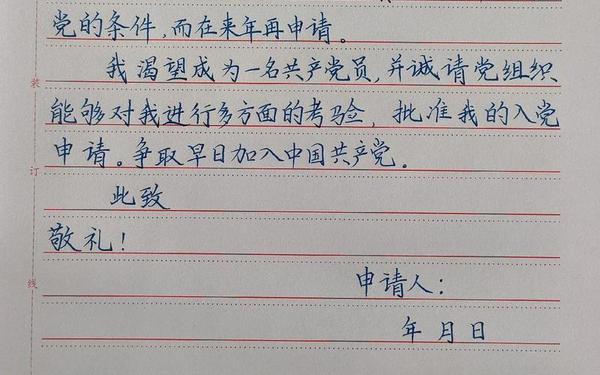 党的条件,而在来年再申请。
我渴望成为一名共产党员,并诚请党组织
能够对我进行多方面的考验,批准我的入党
申请。争取早日加入中国共产党.
此致
敬礼!
申请人:
年月日
装
订
线